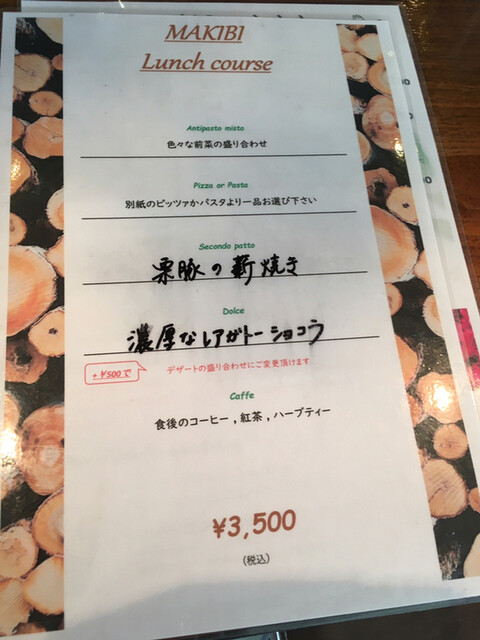 MAKIBI
Lunch course
Antipasto misto
色々な前菜の盛り合わせ
Pizza or Pasta
別紙のピッツァかパスタより一品お選び下さい
Secondo patto
栗豚の薪焼き
Dolce
濃厚なレアガトーショコラ
+¥500で
デザートの盛り合わせにご変更頂けます
Caffe
食後のコーヒー , 紅茶 , ハーブティー
¥3,500
(税込)